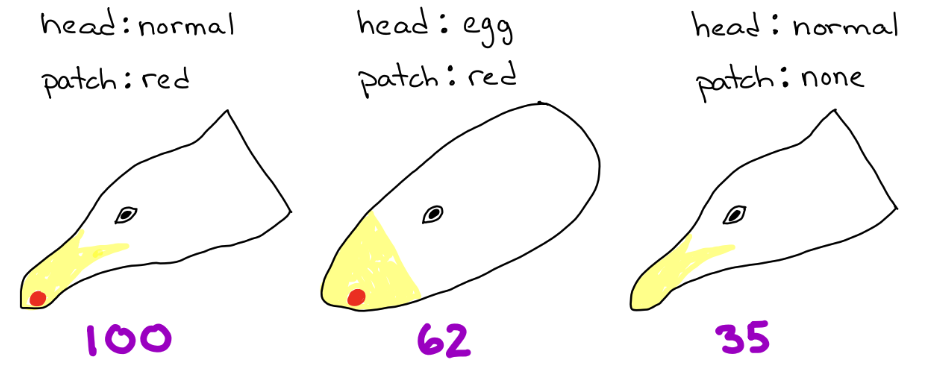 head: normal
patch: red
100
head: egg
patch: red
62
head: normal
patch: none
35